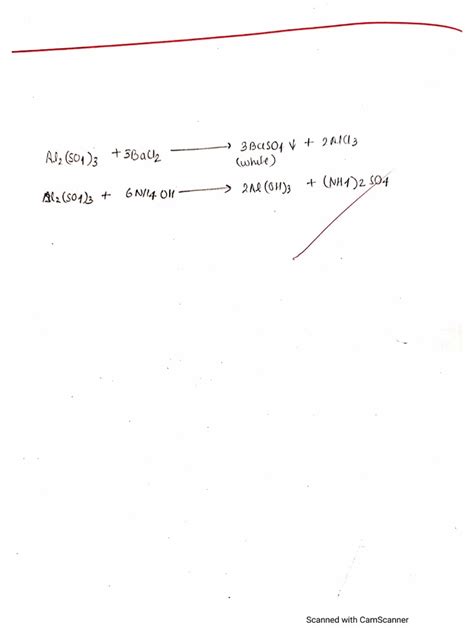 Al₂(SO4)3 + 3BaCl2 ⟶ 3BaSO4 ↓ + 2AlCl3
(white)
Al₂(SO4)3 + 6NH4OH ⟶ 2Al(OH)3 + (NH4)2SO4
Scanned with CamScanner